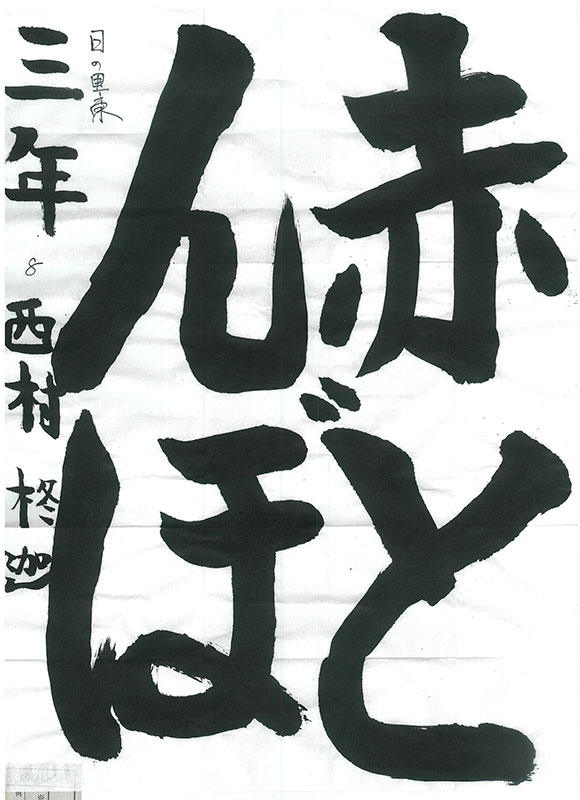 赤と
んぼ
日の里東
三年 8 西村 柊迦